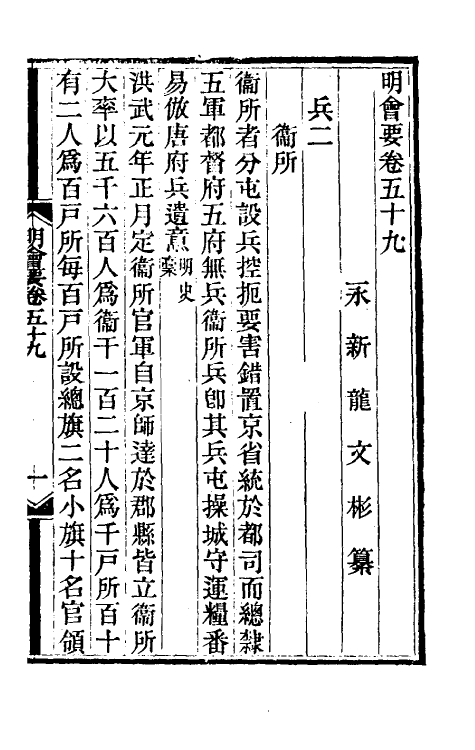 明會要卷五十九
永新龍文彬纂
兵二
衞所
衞所者分屯設兵控扼要害錯置京省統於都司而總隸
五軍都督府五府無兵衞所兵卽其兵屯操城守運糧番
易倣唐府兵遺意明史
藁
洪武元年正月定衞所官軍自京師達於郡縣皆立衞所
大率以五千六百人爲衞千一百二十人爲千戸所百十
有二人爲百戸所每百戸所設總旗二名小旗十名官領
明會要卷五十九
一